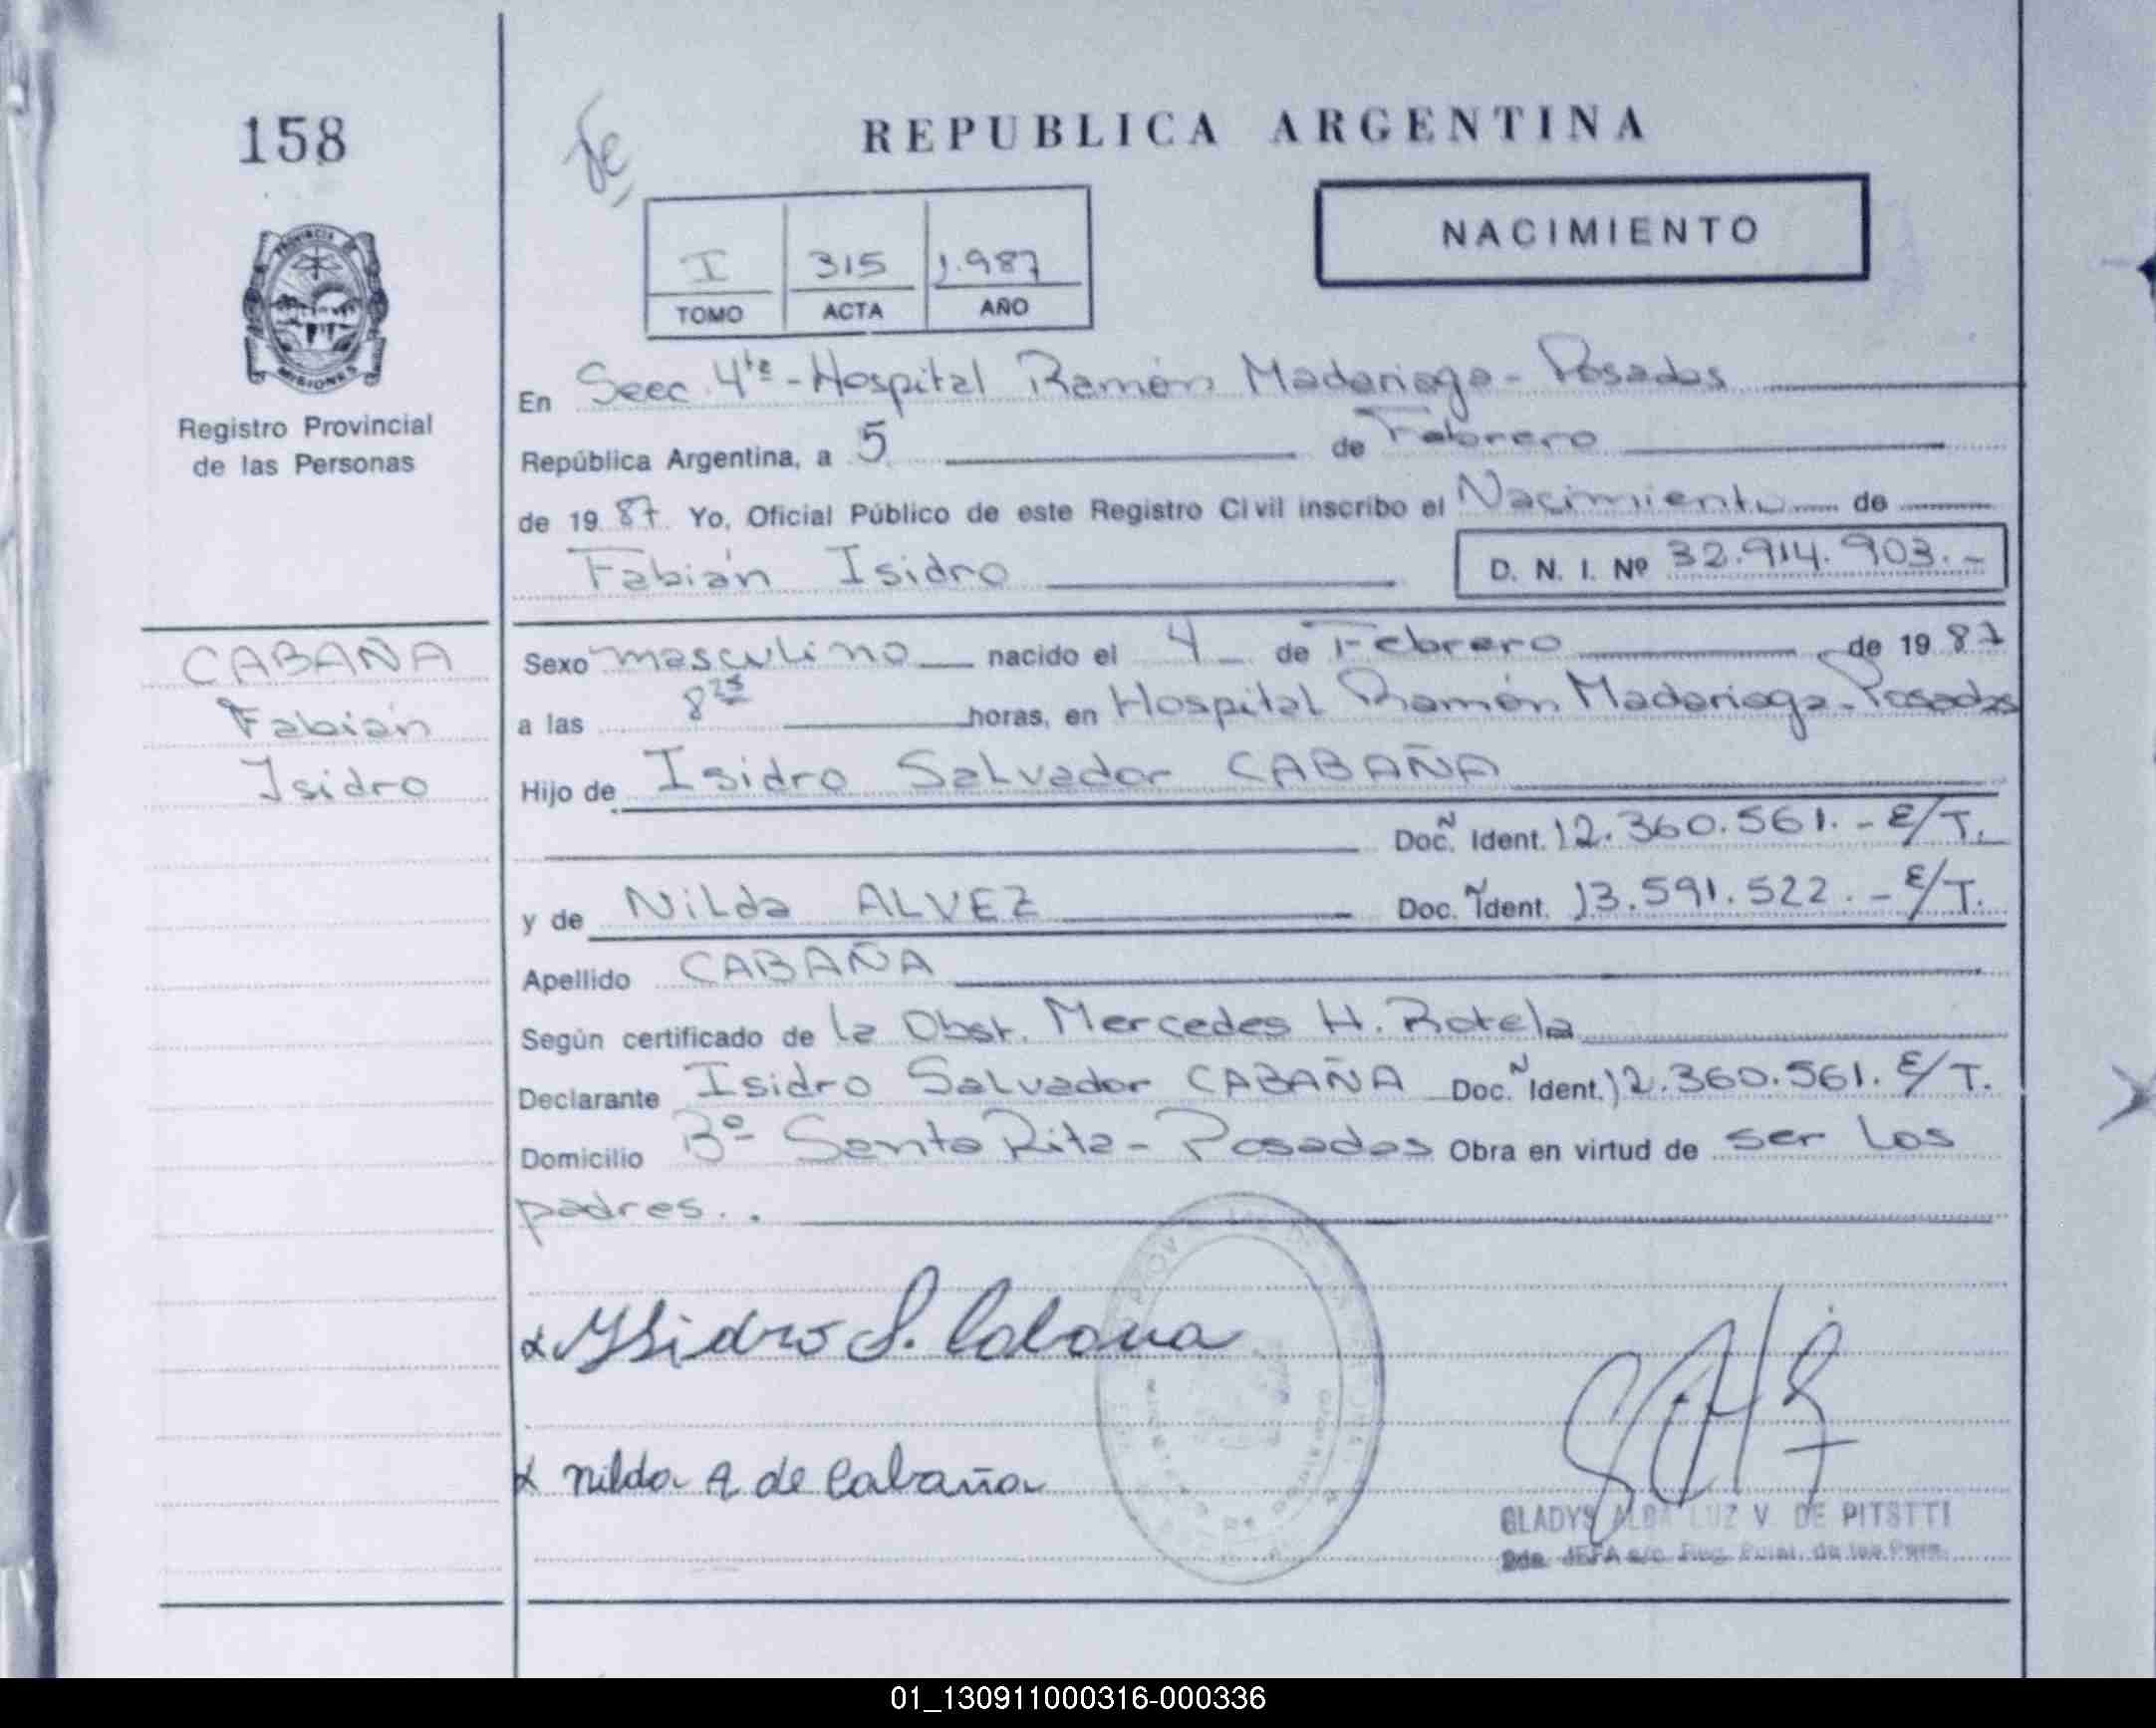 158
REPUBLICA ARGENTINA
NACIMIENTO
I 315 1.987
TOMO ACTA AÑO
PROVINCIA DE
MISIONES
Registro Provincial
de las Personas
En Secc. 4ta - Hospital Ramón Madariaga - Posadas
República Argentina, a 5 de Febrero
de 19 87 Yo, Oficial Público de este Registro Civil inscribo el Nacimiento de
Fabián Isidro D. N. I. Nº 32.914.903.-
CABAÑA
Fabián
Isidro
Sexo masculino nacido el 4 de Febrero de 19 87
a las 8 25 horas, en Hospital Ramón Madariaga - Posadas
Hijo de Isidro Salvador CABAÑA
Doc. N Ident. 12.360.561.- E/T.
y de Nilda ALVEZ Doc. N Ident. 13.591.522.- E/T.
Apellido CABAÑA
Según certificado de la Obst. Mercedes H. Rotela
Declarante Isidro Salvador CABAÑA Doc. N Ident. 12.360.561. E/T.
Domicilio Bº Santa Rita - Posadas Obra en virtud de ser los
padres..
Ysidro S. Cabana
Nilda A de Cabaña
GLADYS ALBA LUZ V. DE PITSTTI
2da. JEFA a/c Reg. Pcial. de las Pers.
01_130911000316-000336